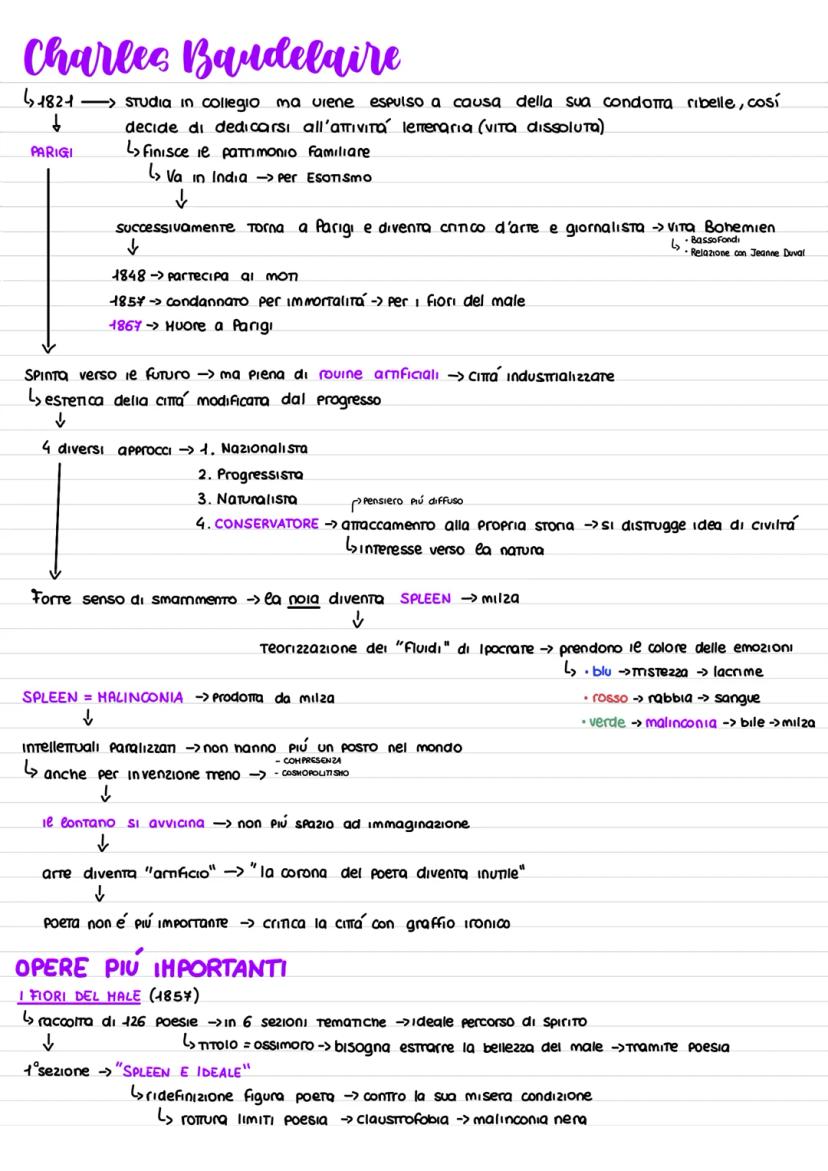 Charles Baudelaire
↳1821 → studia in collegio ma viene espulso a causa della sua condotta ribelle, cosí
decide di dedicarsi all'attivitá letteraria (vita dissoluta)
PARIGI
↳finisce il patrimonio familiare
↳ Va in India → per Esotismo
successivamente torna a Parigi e diventa critico d'arte e giornalista → vita Bohemien
↳ • Bassofondi
• Relazione con Jeanne Duval
1848 → partecipa ai moti
1857 → condannato per immortalitá → per i fiori del male
1867 → Muore a Parigi
Spinta verso il futuro → ma piena di rovine artificiali → cittá industrializzate
↳ estetica della cittá modificata dal progresso
4 diversi approcci → 1. Nazionalista
2. Progressista
3. Naturalista
pensiero piú diffuso
4. CONSERVATORE → attaccamento alla propria storia → si distrugge idea di civiltá
↳interesse verso la natura
Forte senso di smarrimento → la noia diventa SPLEEN → milza
Teorizzazione dei "fluidi" di Ipocrate → prendono il colore delle emozioni
↳ • blu → tristezza → lacrime
SPLEEN = MALINCONIA → prodotta da milza
• rosso → rabbia → sangue
• verde → malinconia → bile → milza
intellettuali paralizzati → non hanno piú un posto nel mondo
↳ anche per invenzione treno → - COMPRESENZA
- COSMOPOLITISMO
il lontano si avvicina → non piú spazio ad immaginazione
arte diventa "artificio" → "la corona del poeta diventa inutile"
poeta non é piú importante → critica la cittá con graffio ironico
OPERE PIÚ IMPORTANTI
I FIORI DEL MALE (1857)
↳ raccolta di 126 poesie → in 6 sezioni tematiche → ideale percorso di spirito
↳ titolo = ossimoro → bisogna estrarre la bellezza del male → tramite poesia
1°sezione → "SPLEEN E IDEALE"
↳ridefinizione figura poeta → contro la sua misera condizione
↳ rottura limiti poesia → claustrofobia → malinconia nera